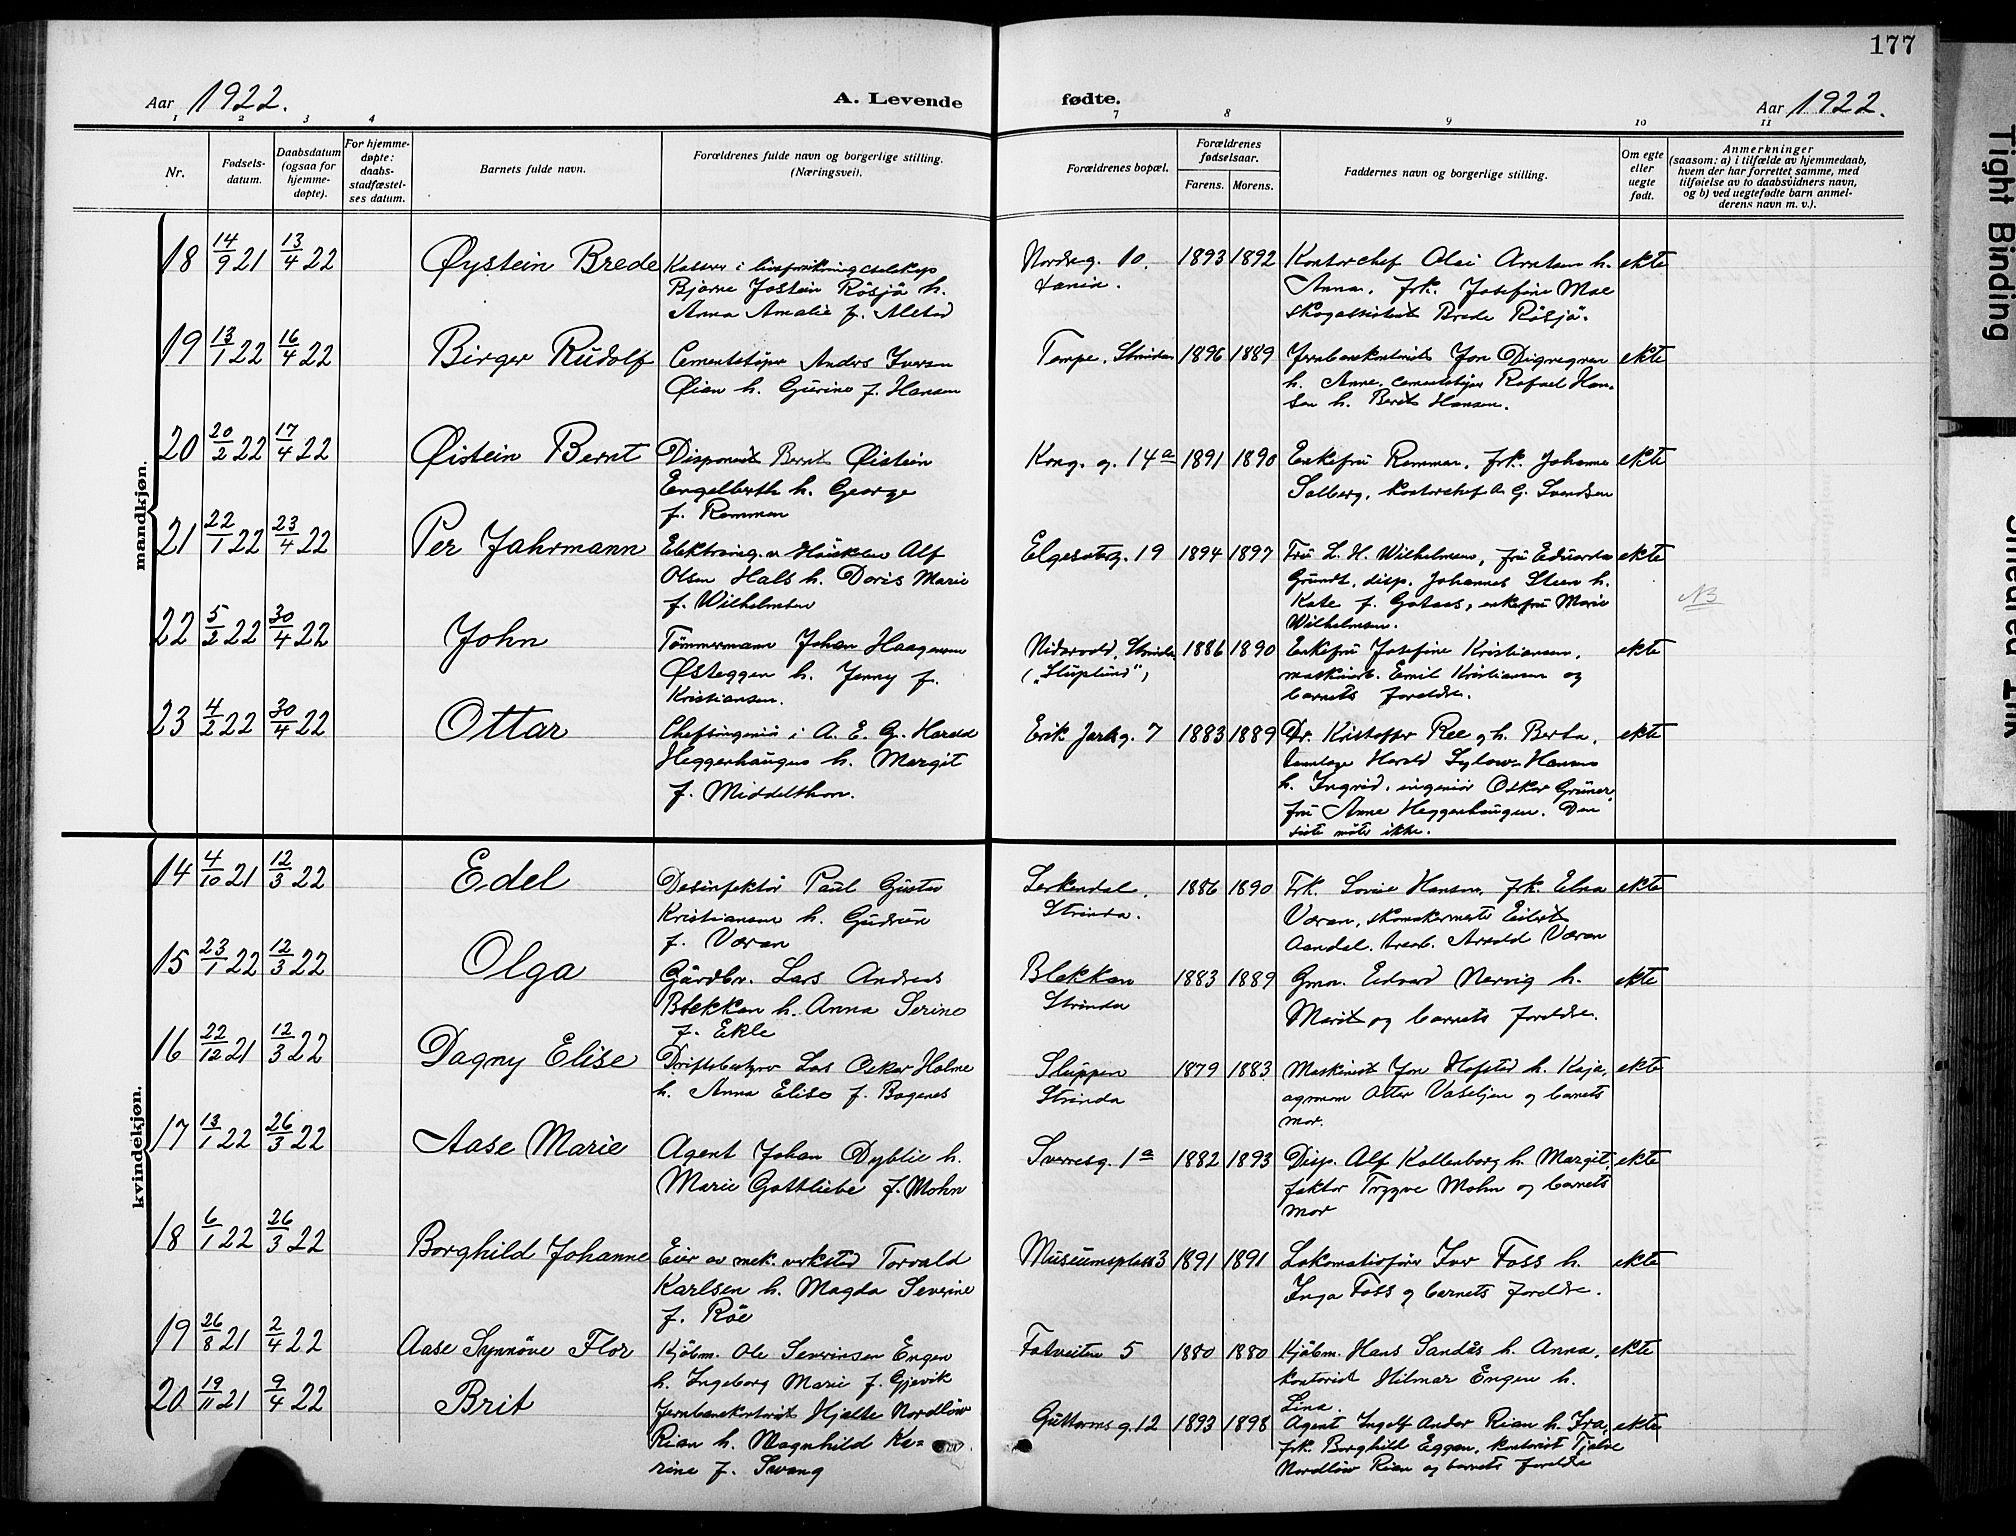 177
Aar 1922.
A. Levende fødte.
Aar 1922.
1 2 3 4 7 8 9 10 11
Nr.
Fødsels-
datum.
Daabsdatum
(ogsaa for
hjemme-
døpte).
For hjemme-
døpte:
daabs-
stadfæstel-
ses datum.
Barnets fulde navn.
Forældrenes fulde navn og borgerlige stilling.
(Næringsvei).
Forældrenes bopæl.
Forældrenes
fødselsaar.
Farens. Morens.
Faddernes navn og borgerlige stilling.
Om egte
eller
uegte
født.
Anmerkninger
(saasom: a) i tilfælde av hjemmedaab,
hvem der har forrettet samme, med
tilføielse av to daabsvidners navn,
og b) ved uegtefødte barn anmel-
derens navn m. v.).
mandkjøn.
18 14/9 21 13/4 22 Øystein Brede
Kasser i livsforsikringsselskap
Bjarne Jostein Rösjö h.
Anna Amalie f. Alstad
Nordreg. 10.
1893 1892
Kontorchef Olai Arntsen h.
Anna, frk. Josefine Moe
skogassistent Brede Rösjö.
ekte
19 13/1 22 16/4 22 Birger Rudolf
Cementstöper Anders Iversen
Øian h. Gurine f. Hansen
Tempe, Strinda
1896 1889
Jernbanekontorist Jon
h. Anne, cementstöper Rafael Han-
sen h. Berit Hansen.
ekte
20 20/2 22 17/4 22 Øistein Bernt
Disponent Bernt Øistein
Engelbreth h. George
f. Remmen
Kong. g. 14a
1891 1890
Enkefru Remmen, frk. Johanne
Solberg, kontorchef A. G. Svendsen
ekte
21 22/1 22 23/4 22 Per Jahrmann
Elektroing. Alf
Olsen Hals h. Doris Marie
f. Wilhelmsen
Elgesetersg. 19
1894 1897
Fru L. H. Wilhelmsen, fru Eduarda
Grundt, disp. Johannes Steen h.
Kate f. Gotaas, enkefru Marie
Wilhelmsen.
ekte
NB
22 5/2 22 30/4 22 John
Tømmermann Johan Haagensen
Østeggen h. Jenny f.
Kristiansen.
Nidarvold, Strinda
("Sluplund")
1886 1890
Enkefru Josefine Kristiansen,
maskinarb. Emil Kristiansen og
barnets foreldre.
ekte
23 4/2 22 30/4 22 Ottar
Chefsingeniör i A. E. G. Harald
Heggenhaugen h. Margit
f. Middelthon.
Erik Jarlsg. 7
1883 1889
Dr. Kristoffer Ree og h. Berta,
tannlæge Harald Sylow-Hansen
h. Ingrid, ingeniör Oskar Grüner,
fru Anne Heggenhaugen. Den
siste møtte ikke.
ekte
kvindekjøn.
14 4/10 21 12/3 22 Edel
Desinfektör Paul Gustav
Kristiansen h. Gudrun
f. Væran
Lerkendal,
Strinda.
1886 1890
Frk. Lovise Hansen, frk. Elna
Væran, skomakermester Eilert
Aandal, Arvold Væran
ekte
15 23/1 22 12/3 22 Olga
Gårdbr. Lars Andreas
Blekkan h. Anna Serine
f. Ekle
Blekkan
Strinda
1883 1889
Gmn. Edvard Nervig h.
Marit og barnets foreldre.
ekte
16 22/12 21 12/3 22 Dagny Elise
Driftsbestyrer Lars Oskar Holme
h. Anna Elise f. Bogenes
Sluppen
Strinda
1879 1883
Maskinist Jon Hofstad h. Kaja,
agronom Otter Vaseljen og barnets
mor.
ekte
17 13/1 22 26/3 22 Aase Marie
Agent Johan Dyblie h.
Marie Gottliebe f. Mohn
Sverresg. 1a
1882 1893
Disp. Alf Kallenborg h. Margit,
faktor Trygve Mohn og barnets
mor
ekte
18 6/1 22 26/3 22 Borghild Johanne
Eier av mek. verksted Torvald
Karlsen h. Magda Severine
f. Röe
Museumsplass 3
1891 1891
Lokomotivförer Ivar Foss h.
Inga Foss og barnets foreldre.
ekte
19 26/8 21 2/4 22 Aase Synnöve Flor
Kjöbm. Ole Severinsen Engen
h. Ingeborg Marie f. Gjevik
Fotveiten 5
1880 1880
Kjöbm. Hans Sandås h. Anna,
kontorist Hilmar Engen h.
Lina.
ekte
20 19/11 21 9/4 22 Brit
Jernbanekontorist Hjalte Nordlöw
Rian h. Magnhild Ka-
rine f. Svang
Guttorms g. 12
1893 1898
Agent Ingolf Andor Rian h. Fra,
frk. Borghild Eggen, kontorist Tjalve
Nordlöw Rian og barnets foreldre
ekte
Tight Binding